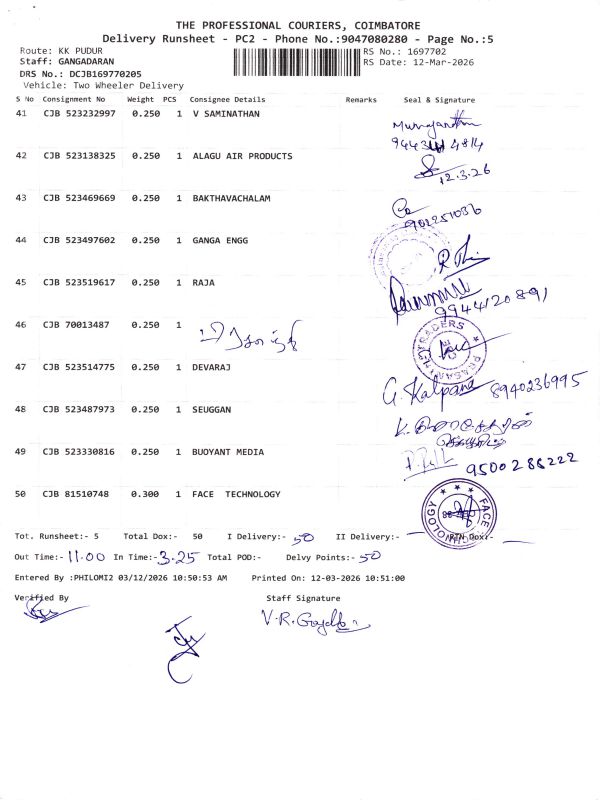 THE PROFESSIONAL COURIERS, COIMBATORE
Delivery Runsheet - PC2 - Phone No.:9047080280 - Page No.:5
Route: KK PUDUR
RS No.: 1697702
Staff: GANGADARAN
RS Date: 12-Mar-2026
DRS No.: DCJB169770205
Vehicle: Two Wheeler Delivery
S No Consignment No Weight PCS Consignee Details Remarks Seal & Signature
41 CJB 523232997 0.250 1 V SAMINATHAN
42 CJB 523138325 0.250 1 ALAGU AIR PRODUCTS
12.3.26
43 CJB 523469669 0.250 1 BAKTHAVACHALAM
44 CJB 523497602 0.250 1 GANGA ENGG
45 CJB 523519617 0.250 1 RAJA
9944120891
46 CJB 70013487 0.250 1
TRADERS
47 CJB 523514775 0.250 1 DEVARAJ
G. Kalpana 8940236995
48 CJB 523487973 0.250 1 SEUGGAN
49 CJB 523330816 0.250 1 BUOYANT MEDIA
9500286222
50 CJB 81510748 0.300 1 FACE TECHNOLOGY
FACE TECHNOLOGY
Tot. Runsheet:- 5 Total Dox:- 50 I Delivery:- 50 II Delivery:- RTN Dox:-
Out Time:- 11.00 In Time:- 3.25 Total POD:- Delvy Points:- 50
Entered By :PHILOMI2 03/12/2026 10:50:53 AM Printed On: 12-03-2026 10:51:00
Verified By Staff Signature